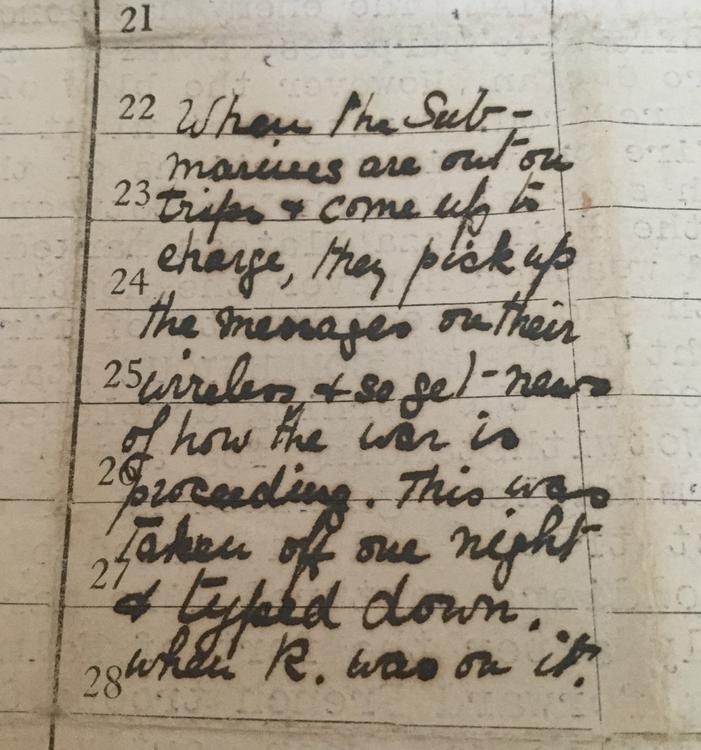 21
22 When the Sub-
marines are out on
23 trips & come up to
charge, they pick up
24
the messages on their
25 wireless, & so get news
of how the war is
26
proceeding. This was
taken off one night
27
& typed down.
28 when R. was on it.